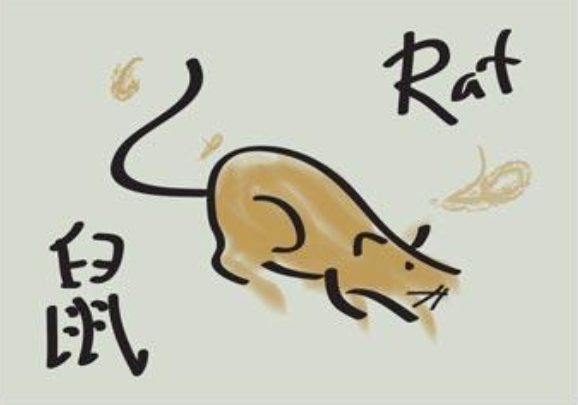 Rat
鼠